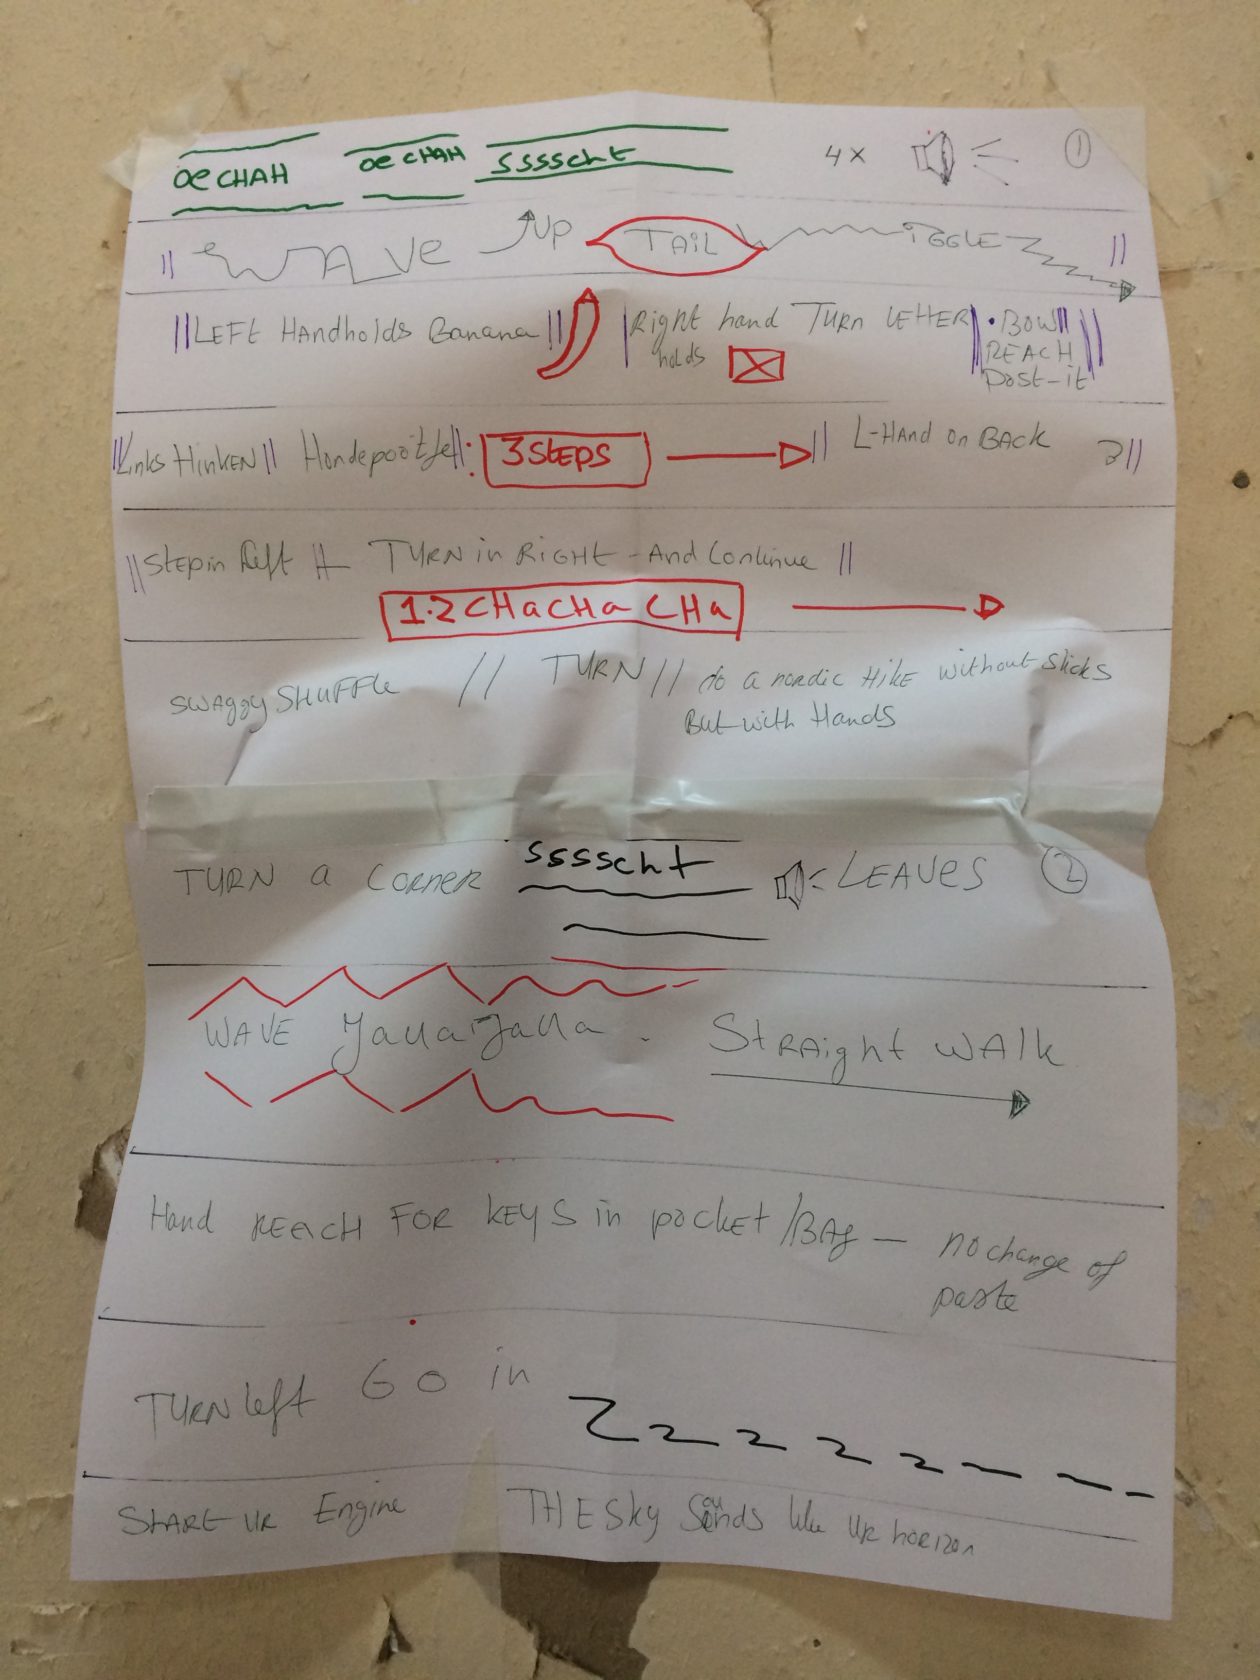 oe CHAH oe CHAH sssscht 4x 1
WAVE UP TAIL iGGLE
LEFT Handholds Banana Right hand TURN LETTER • BOW
holds REACH
post-it
Links HinkEN Hondepootje : 3 STEPS L-HAND on BACK
Step in left TURN in RIGHT - And Continue
1.2 CHaCHa CHa
SWAggy SHUFFLE // TURN // do a nordic HiKE without sticks
But with Hands
TURN a CORNER sssscht LEAVES 2
WAVE YallaYalla. StRAight WAlk
Hand REACH FOR KEYS in pocket/BAg — no change of
paste
TURN left GO in
Zzzzz
START UR Engine THE Sky Sounds like UR horizon